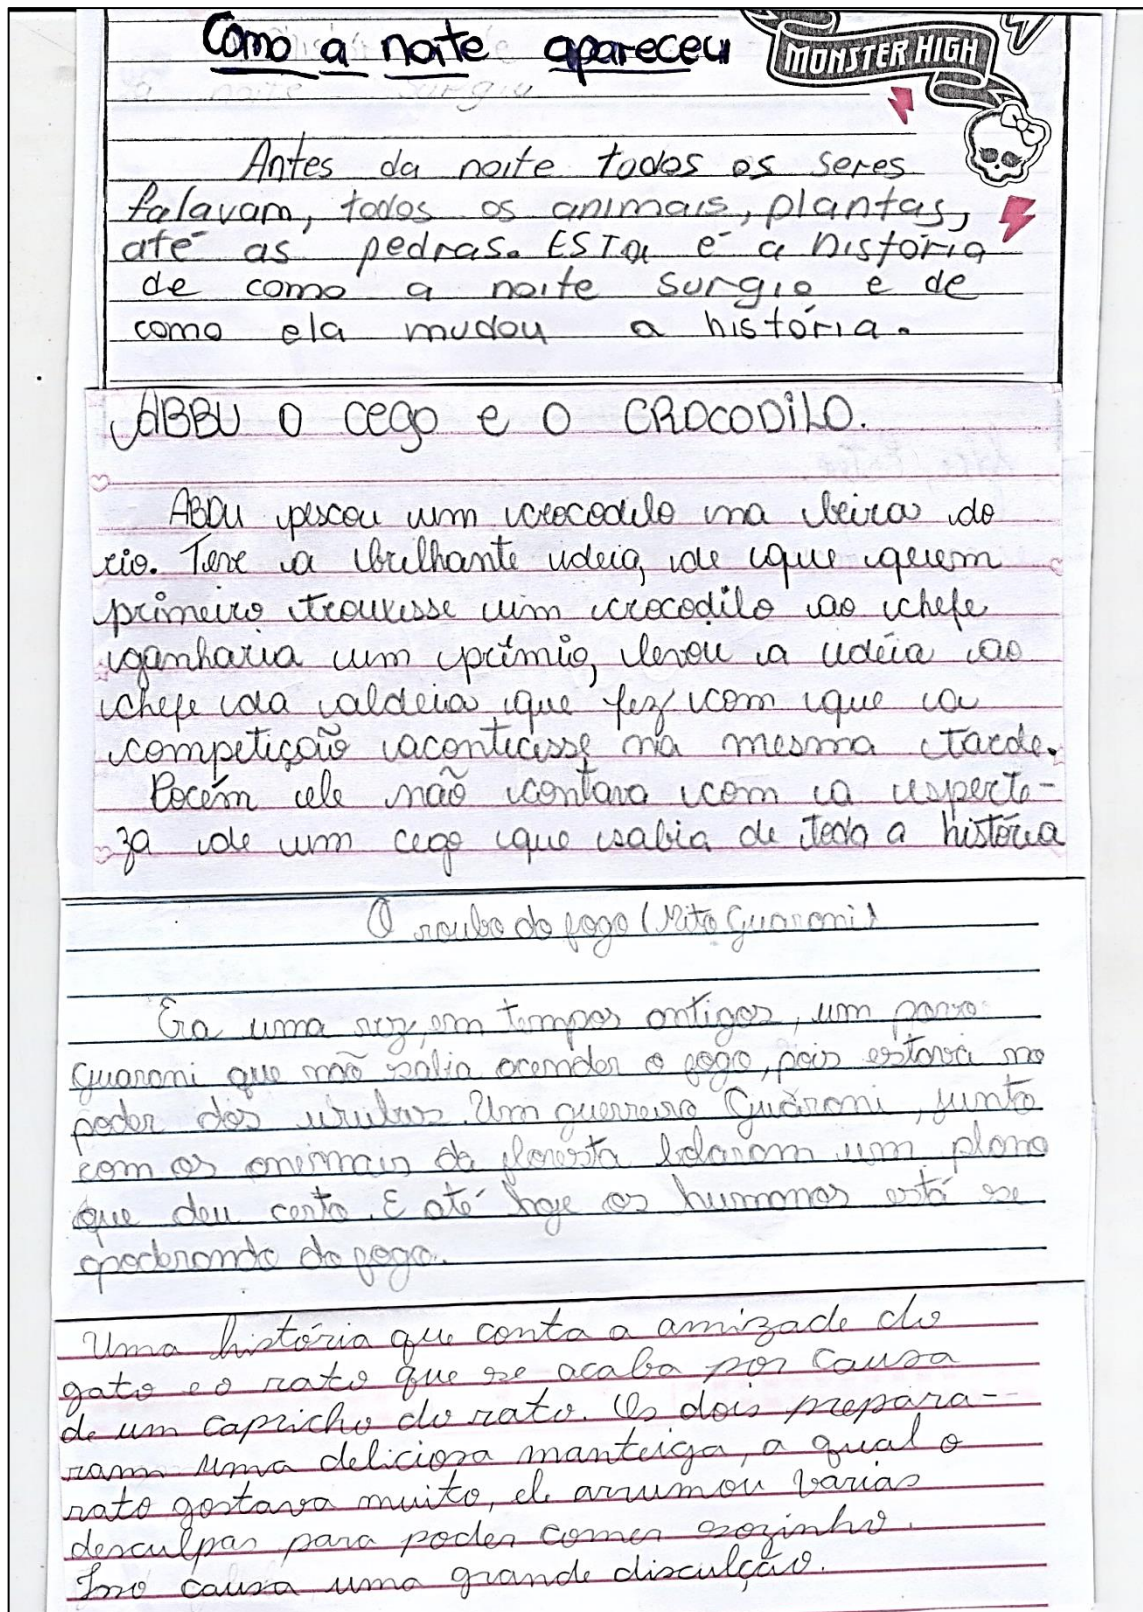 Como a noite apareceu
MONSTER HIGH
Antes da noite todos os seres
falavam, todos os animais, plantas,
até as pedras. ESTA é a história
de como a noite surgio e de
como ela mudou a história.
ABBU O cego e O CROCODILO.
ABDU pescou um crocodilo na beira do
rio. Teve a brilhante ideia, de que quem
primeiro trouxesse um crocodilo ao chefe
ganharia um prêmio, levou a idéia ao
chefe da aldeia que fez com que a
competição acontecesse na mesma tarde.
Porém ele não contava com a esperte-
za de um cego que sabia de toda a história
O roubo do fogo (Mito Guarani)
Era uma vez, em tempos antigos, um povo
Guarani que não sabia acender o fogo, pois estava no
poder dos urubus. Um guerreiro Guarani, junto
com os animais da floresta bolaram um plano
que deu certo. E até hoje os humanos está se
apoderando do fogo.
Uma história que conta a amizade do
gato e o rato que se acaba por causa
de um capricho do rato. Os dois prepara-
ram uma deliciosa manteiga, a qual o
rato gostava muito, ele arrumou várias
desculpas para poder comer sozinho.
Isso causa uma grande disculção.